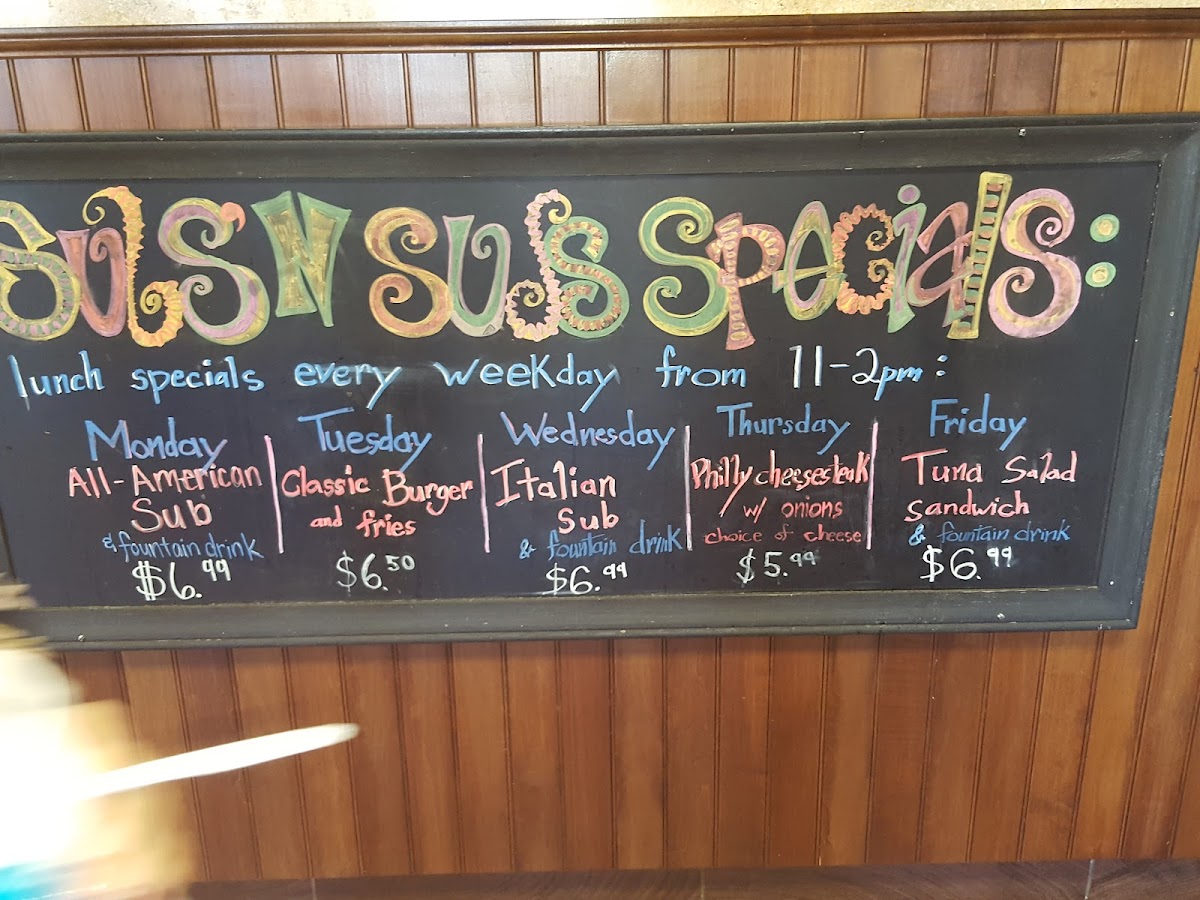 Subs'N Suds Specials:
lunch specials every weekday from 11-2pm:
Monday
All-American
Sub
& fountain drink
$6.99
Tuesday
Classic Burger
and fries
$6.50
Wednesday
Italian
Sub
& fountain drink
$6.99
Thursday
Philly cheesesteak
w/ onions
choice of cheese
$5.99
Friday
Tuna Salad
Sandwich
& fountain drink
$6.99